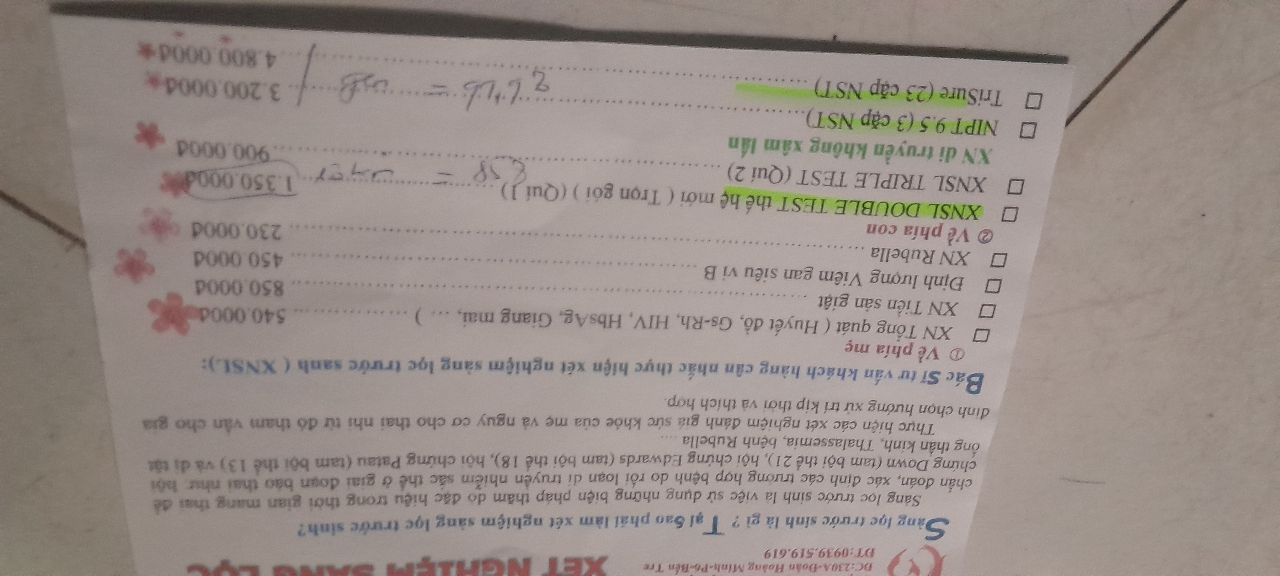 ĐC:230A-Đoàn Hoàng Minh-P6-Bến Tre
ĐT:0939.519.619
XÉT NGHIỆM SÀNG LỌC
Sàng lọc trước sinh là gì? Tại Sao phải làm xét nghiệm sàng lọc trước sinh?
Sàng lọc trước sinh là việc sử dụng những biện pháp thăm dò đặc hiệu trong thời gian mang thai để
chẩn đoán, xác định các trường hợp bệnh do rối loạn di truyền nhiễm sắc thể ở giai đoạn bào thai như: hội
chứng Down (tam bội thể 21), hội chứng Edwards (tam bội thể 18), hội chứng Patau (tam bội thể 13) và dị tật
ống thần kinh, Thalassemia, bệnh Rubella ....
Thực hiện các xét nghiệm đánh giá sức khỏe của mẹ và nguy cơ cho thai nhi từ đó tham vấn cho gia
đình chọn hướng xử trí kịp thời và thích hợp.
Bác Sĩ tư vấn khách hàng cân nhắc thực hiện xét nghiệm sàng lọc trước sanh ( XNSL):
① Về phía mẹ
XN Tổng quát ( Huyết đồ, Gs-Rh, HIV, HbsAg, Giang mai, ... ) .................. 540.000đ
XN Tiền sản giật .................. 850.000đ
Định lượng Viêm gan siêu vi B .................. 450.000đ
XN Rubella .................. 230.000đ
② Về phía con
XNSL DOUBLE TEST thế hệ mới ( Trọn gói ) (Quí 1) .................. 1.350.000đ
XNSL TRIPLE TEST (Quí 2) .................. 900.000đ
XN di truyền không xâm lấn
NIPT 9.5 (3 cặp NST) .................. 3.200.000đ
TriSure (23 cặp NST) .................. 4.800.000đ